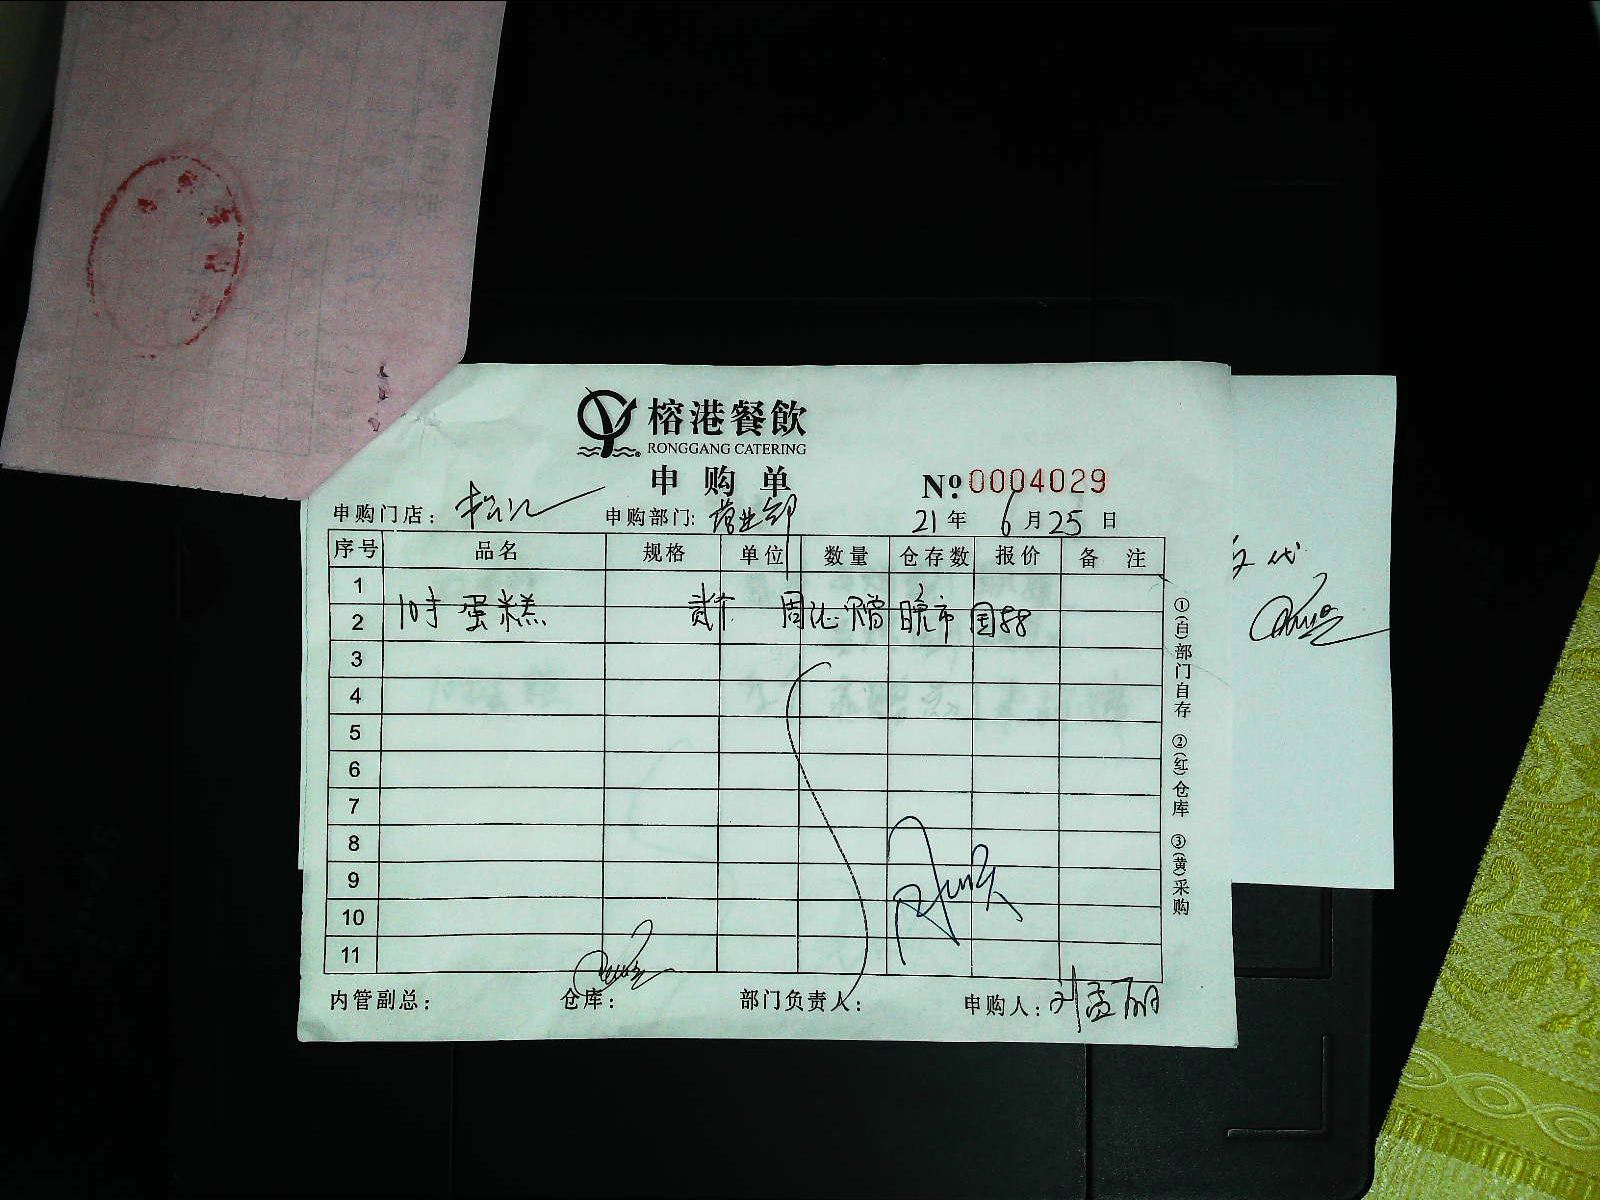 榕港餐飲
RONGGANG CATERING
申购单
№:0004029
申购门店: 松江 申购部门: 营业部 21年 6月25日
序号 品名 规格 单位 数量 仓存数 报价 备注
1
2 10寸 蛋糕 贰个 周 赠 晚市 国88
3
4
5
6
7
8
9
10
11
内管副总: 仓库: 部门负责人: 申购人: 刘孟丽
①(白)部门自存 ②(红)仓库 ③(黄)采购
代